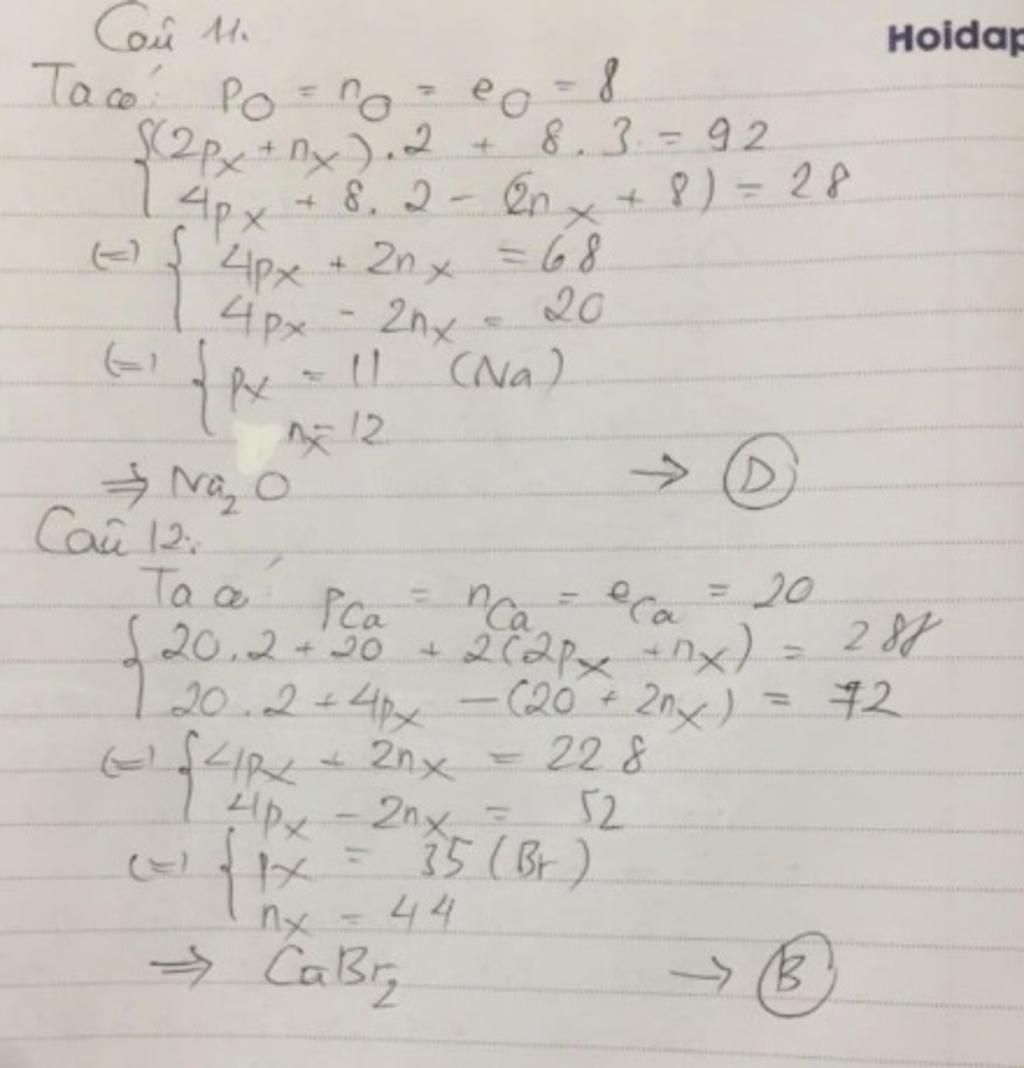 Câu 11.
Hoidap
Ta có: pO = nO = eO = 8
{(2pX + nX).2 + 8.3 = 92
4pX + 8.2 - (2nX + 8) = 28
(=) { 4pX + 2nX = 68
4pX - 2nX = 20
(=) { pX = 11 (Na)
nX = 12
⇒ Na₂O → D
Câu 12:
Ta có pCa = nCa = eCa = 20
{ 20.2 + 20 + 2(2pX + nX) = 288
20.2 + 4pX - (20 + 2nX) = 72
(=) { 4pX + 2nX = 228
4pX - 2nX = 52
(=) { pX = 35 (Br)
nX = 44
⇒ CaBr₂ → B